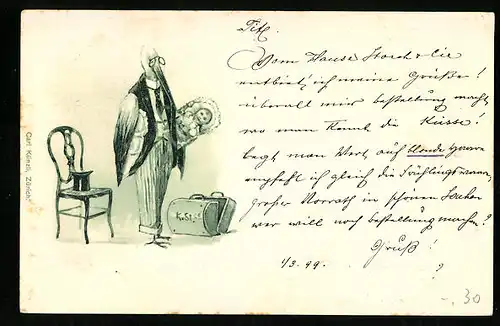 Tit.
Vom Hause Storch & Cie
entbiet' ich meine Grüße!
überall mir bestellung macht
wo man kennt die Küsse!
Legt man Wert auf blonde
empfehl ich gleich die Frühlings
großer Vorrath in schönen Sachen
wer will noch bestellung machen?
Gruß!
1/3.99.
?
K.St.
Carl Künzli, Zürich
-.30